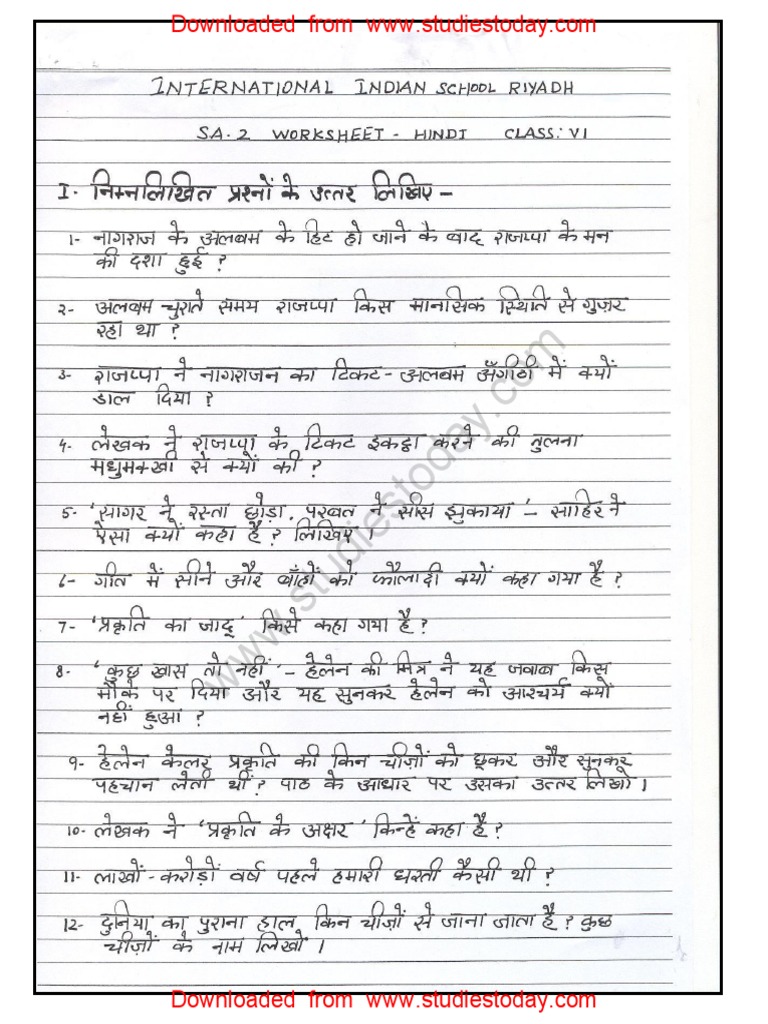 Downloaded from www.studiestoday.com
INTERNATIONAL INDIAN SCHOOL RIYADH
SA.2 WORKSHEET - HINDI CLASS: VI
I. निम्नलिखित प्रश्नों के उत्तर लिखिए -
1- नागराज के अलबम के हिट हो जाने के बाद राजप्पा के मन
की दशा हुई ?
2- अलबम चुराते समय राजप्पा किस मानसिक स्थिति से गुज़र
रहा था ?
3- राजप्पा ने नागराजन का टिकट-अलबम अँगीठी में क्यों
डाल दिया ?
4- लेखक ने राजप्पा के टिकट इकट्ठा करने की तुलना
मधुमक्खी से क्यों की ?
5- 'सागर ने रस्ता छोड़ा, परबत ने सीस झुकाया' - साहिर ने
ऐसा क्यों कहा है ? लिखिए ।
6- गीत में सीने और बाँहों को फ़ौलादी क्यों कहा गया है ?
7- 'प्रकृति का जादू' किसे कहा गया है ?
8- 'कुछ खास तो नहीं' - हेलेन की मित्र ने यह जवाब किस
मौके पर दिया और यह सुनकर हेलेन को आश्चर्य क्यों
नहीं हुआ ?
9- हेलेन केलर प्रकृति की किन चीज़ों को छूकर और सुनकर
पहचान लेती थीं ? पाठ के आधार पर उसका उत्तर लिखो ।
10- लेखक ने 'प्रकृति के अक्षर' किन्हें कहा है ?
11- लाखों-करोड़ों वर्ष पहले हमारी धरती कैसी थी ?
12- दुनिया का पुराना हाल किन चीज़ों से जाना जाता है ? कुछ
चीज़ों के नाम लिखो ।
www.studiestoday.com
Downloaded from www.studiestoday.com